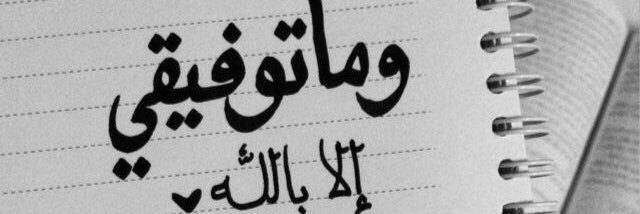 وما توفيقي
إلا بالله